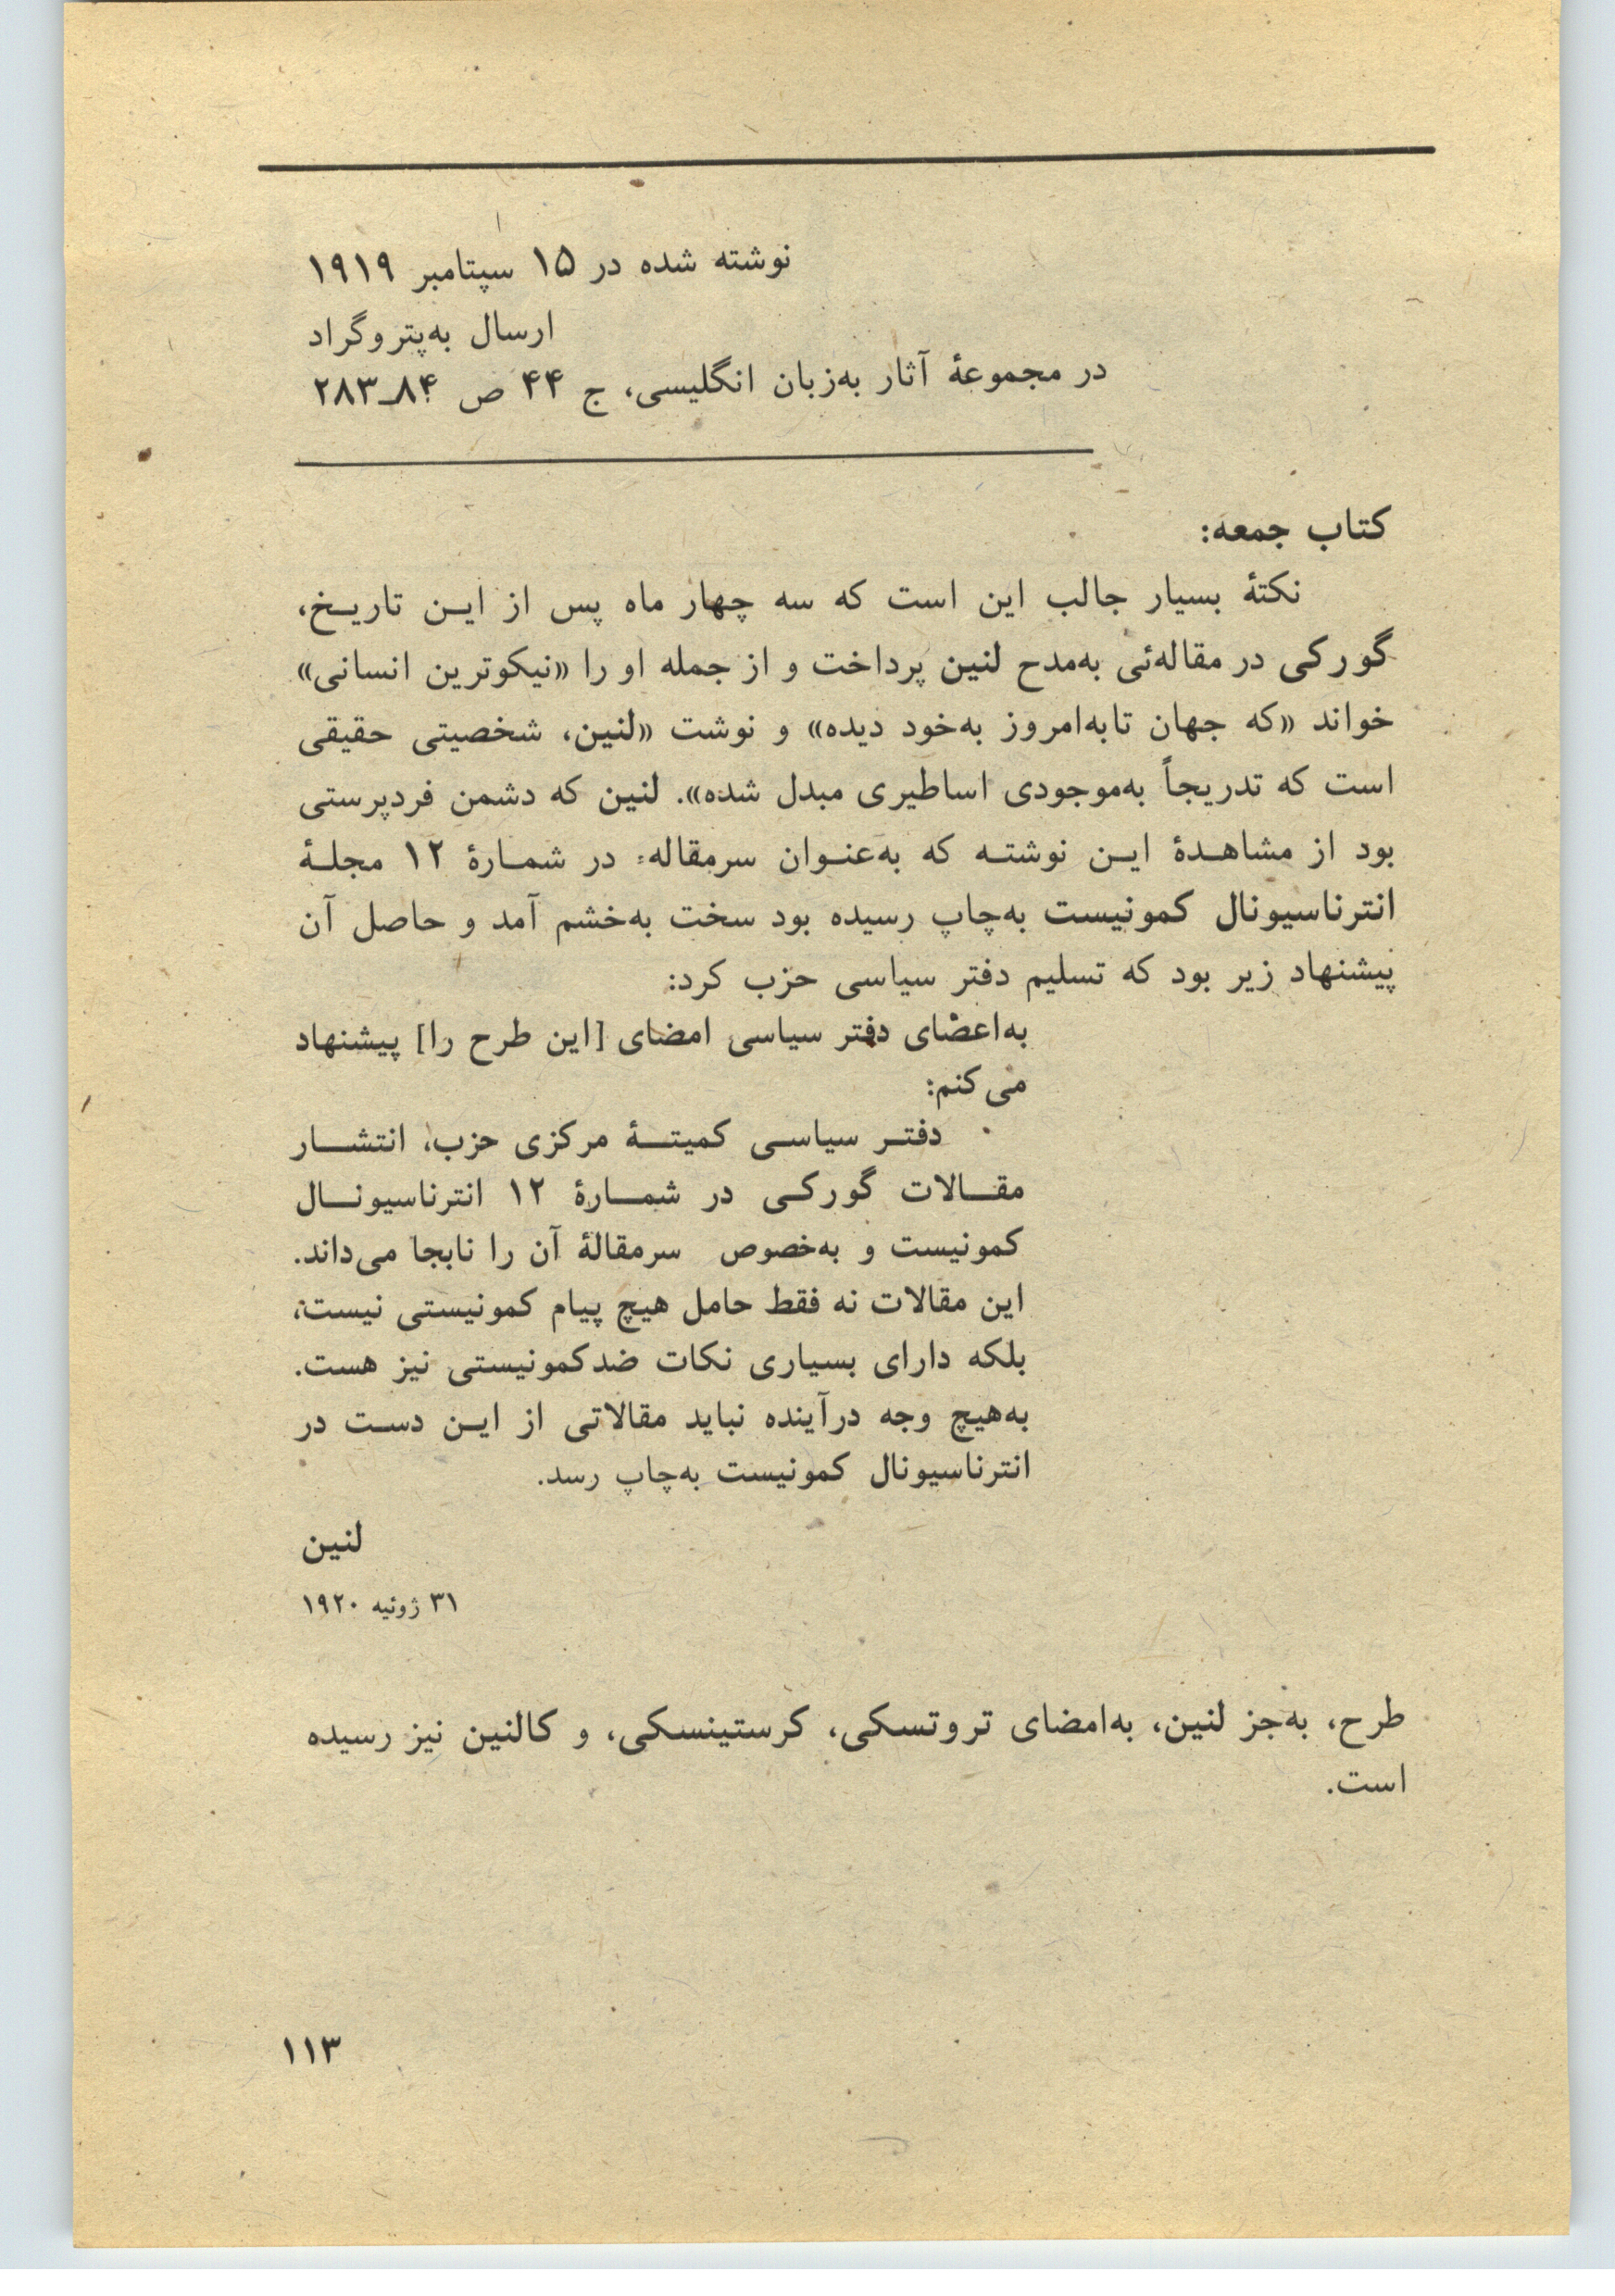 نوشته شده در ۱۵ سپتامبر ۱۹۱۹
ارسال به‌پتروگراد
در مجموعهٔ آثار به‌زبان انگلیسی، ج ۴۴ ص ۸۴ـ۲۸۳
کتاب جمعه:
نکتهٔ بسیار جالب این است که سه چهار ماه پس از ایـن تاریـخ،
گورکی در مقاله‌ئی به‌مدح لنین پرداخت و از جمله او را «نیکوترین انسانی»
خواند «که جهان تابه‌امروز به‌خود دیده» و نوشت «لنین، شخصیتی حقیقی
است که تدریجاً به‌موجودی اساطیری مبدل شده». لنین که دشمن فردپرستی
بود از مشاهـدهٔ ایـن نوشتـه که به‌عنـوان سرمقاله در شمـارهٔ ۱۲ مجلـهٔ
انترناسیونال کمونیست به‌چاپ رسیده بود سخت به‌خشم آمد و حاصل آن
پیشنهاد زیر بود که تسلیم دفتر سیاسی حزب کرد:
به‌اعضای دفتر سیاسی امضای [این طرح را] پیشنهاد
می‌کنم:
دفتـر سیاسـی کمیتــهٔ مرکزی حزب، انتشــار
مقــالات گورکـی در شمــارهٔ ۱۲ انترناسیونــال
کمونیست و به‌خصوص سرمقالهٔ آن را نابجا می‌داند.
این مقالات نه فقط حامل هیچ پیام کمونیستی نیست،
بلکه دارای بسیاری نکات ضدکمونیستی نیز هست.
به‌هیچ وجه درآینده نباید مقالاتی از ایـن دسـت در
انترناسیونال کمونیست به‌چاپ رسد.
لنین
۳۱ ژوئیه ۱۹۲۰
طرح، به‌جز لنین، به‌امضای تروتسکی، کرستینسکی، و کالنین نیز رسیده
است.
۱۱۳